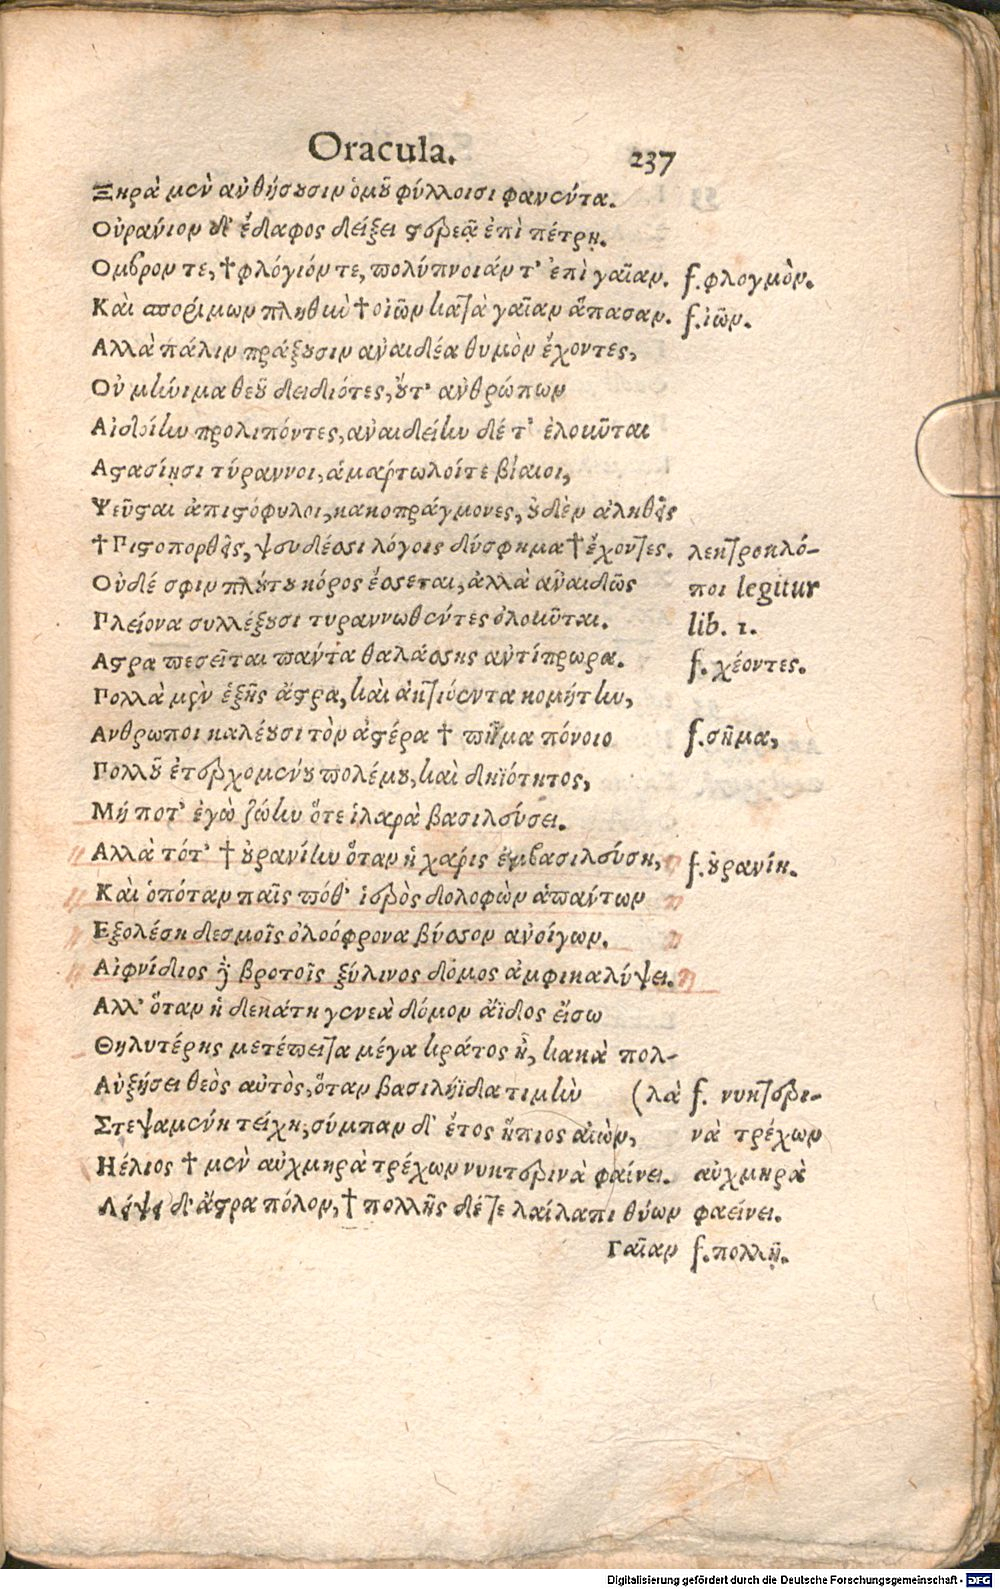 Oracula. 237
Ξηρὰ μὲν ἀνθήσουσιν ὁμοῦ φύλλοισι φανέντα.
Οὐράνιον δ' ἔδαφος δείξει στερεᾷ ἐπὶ πέτρῃ.
Ομβρον τε, † φλόγιόν τε, πολύπνοιάν τ' ἐπὶ γαῖαν. f. φλογμὸν.
Καὶ σπορίμων πληθὺν † οἰῶν κατὰ γαῖαν ἅπασαν. f. ἰῶν.
Αλλὰ πάλιν πράξουσιν ἀναιδέα θυμὸν ἔχοντες,
Οὐ μήνιμα θεοῦ δειδιότες, οὔτ' ἀνθρώπων
Αἰδοίην προλιπόντες, ἀναιδείην δέ τ' ἐλοκῦται
Αστασίῃσι τύραννοι, ἁμαρτωλοίτε βίαιοι,
Ψεῦσται ἀπιστόφυλοι, κακοπράγμονες, οὐδὲν ἀληθεῖς
† Πιστοπορθεῖς, ψευδέσσι λόγοις δύσφημα † ἔχοντες. λεκτροκλό-
Οὐδέ σφιν πλούτου κόρος ἔσσεται, ἀλλὰ ἀναιδῶς ποι legitur
Πλείονα συλλέξουσι τυραννωθέντες ὀλοκῦται. lib. 1.
Αστρα πεσεῖται πάντα θαλάσσης ἀντίπρωρα. f. χέοντες.
Πολλὰ μὲν ἑξῆς ἄστρα, καὶ ἀκτινόεντα κομήτην,
Ανθρωποι καλέουσι τὸν ἀστέρα † πῆμα πόνοιο f. σῆμα,
Πολλοῦ ἐπερχομένου πολέμου, καὶ δηϊότητος,
Μή ποτ' ἐγὼ ζώην ὅτε ἱλαρὰ βασιλεύσει.
Αλλὰ τότ' † οὐρανίην ὅταν ἡ χάρις ἐμβασιλεύσῃ, f. οὐρανίη.
Καὶ ὁπόταν παῖς πόθ' ἱερὸς δολοφὼν ἁπάντων
Εξολέσῃ δεσμοῖς ὀλοόφρονα βύσσον ἀνοίγων.
Αἰφνίδιος καὶ βροτοῖς ξύλινος δόμος ἀμφικαλύψει.
Αλλ' ὅταν ἡ δεκάτη γενεὰ δόμον ἄϊδος εἴσω
Θηλυτέρης μετέπειτα μέγα κράτος ἧ, κακὰ πολ-
Αὐξήσει θεὸς αὐτὸς, ὅταν βασιληΐδα τιμὴν (λὰ f. νυκτερι-
Στεψαμένη τείχῃ, σύμπαν δ' ἔτος ἤπιος αἰὼν, νὰ τρέχων
Ηέλιος † μὲν αὐχμηρὰ τρέχων νυκτερινὰ φαίνει. αὐχμηρὰ
Λείψει δ' ἄστρα πόλον, † πολλῆς δέ τε λαίλαπι θύων φαείνει.
Γαῖαν f. πολλῇ.
Digitalisierung gefördert durch die Deutsche Forschungsgemeinschaft - DFG